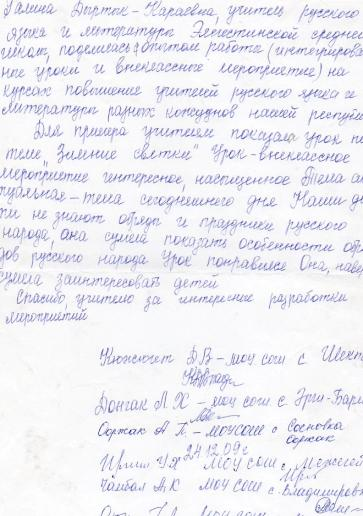 Галина Дыртык-Караевна, учитель русского
языка и литературы Элегестинской средней
школы, поделилась опытом работы (интегрирова
ные уроки и внеклассное мероприятие) на
курсах повышение учителей русского языка и
литературы разных кожуунов нашей республи
Для примера учителям показала урок по
теме „Зимние святки" Урок-внеклассное
мероприятие интересное, насыщенное Тема ак
туальная-тема сегодняшнего дня Наши де
ти не знают обряды и праздники русского
народа, она сумела показать особенности обря
дов русского народа Урок понравился Она, навер
сумела заинтересовать детей
Спасибо, учителю за интересные разработки
мероприятий
Д В - моу сош с
Донгак Л Х - моу сош с Эрги-Бар
Ооржак А П - моу сош с Сосновка
Ооржак
24 12 09 г
У Х МОУ сош с Межегей
Чамбал А К МОУ сош с Владимировка